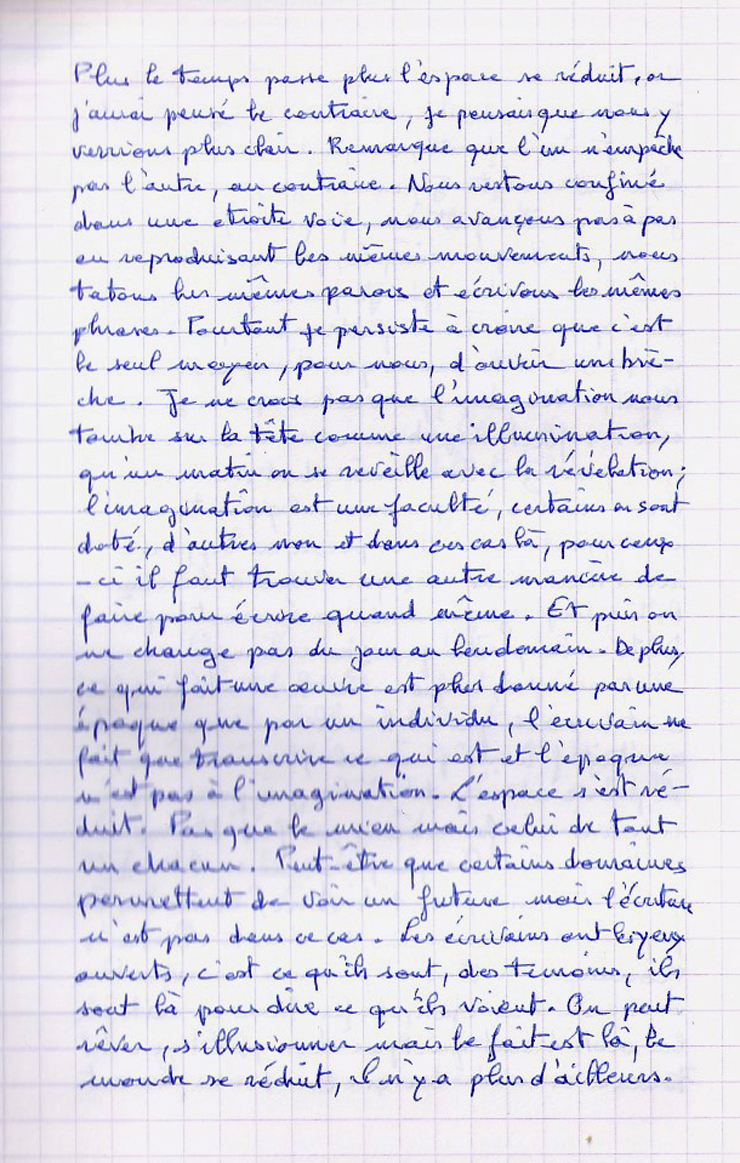 Plus le temps passe plus l'espace se réduit, or
j'aurai pensé le contraire, je pensais que nous y
verrions plus clair. Remarque que l'un n'empêche
pas l'autre, au contraire. Nous restons confiné
dans une etroite voie, nous avançons pas à pas
en reproduisant les mêmes mouvements, nous
tatons les mêmes parois et écrivons les mêmes
phrases. Pourtant je persiste à croire que c'est
le seul moyen, pour nous, d'ouvrir une brè-
che. Je ne crois pas que l'imagination nous
tombe sur la tête comme une illumination,
qu'un matin on se reveille avec la révélation ;
l'imagination est une faculté, certains en sont
doté, d'autres non et dans ces cas là, pour ceux
-ci il faut trouver une autre manière de
faire pour écrire quand même. Et puis on
ne change pas du jour au lendemain. De plus,
ce qui fait une œuvre est plus donné par une
époque que par un individu, l'écrivain ne
fait que transcrire ce qui est et l'époque
n'est pas à l'imagination. L'espace s'est ré-
duit. Pas que le mien mais celui de tout
un chacun. Peut-être que certains domaines
permettent de voir un future mais l'écriture
n'est pas dans ce cas. Les écrivains ont les yeux
ouverts, c'est ce qu'ils sont, des temoins, ils
sont là pour dire ce qu'ils voient. On peut
rêver, s'illusionner mais le fait est là, le
monde se réduit, il n'y a plus d'ailleurs.